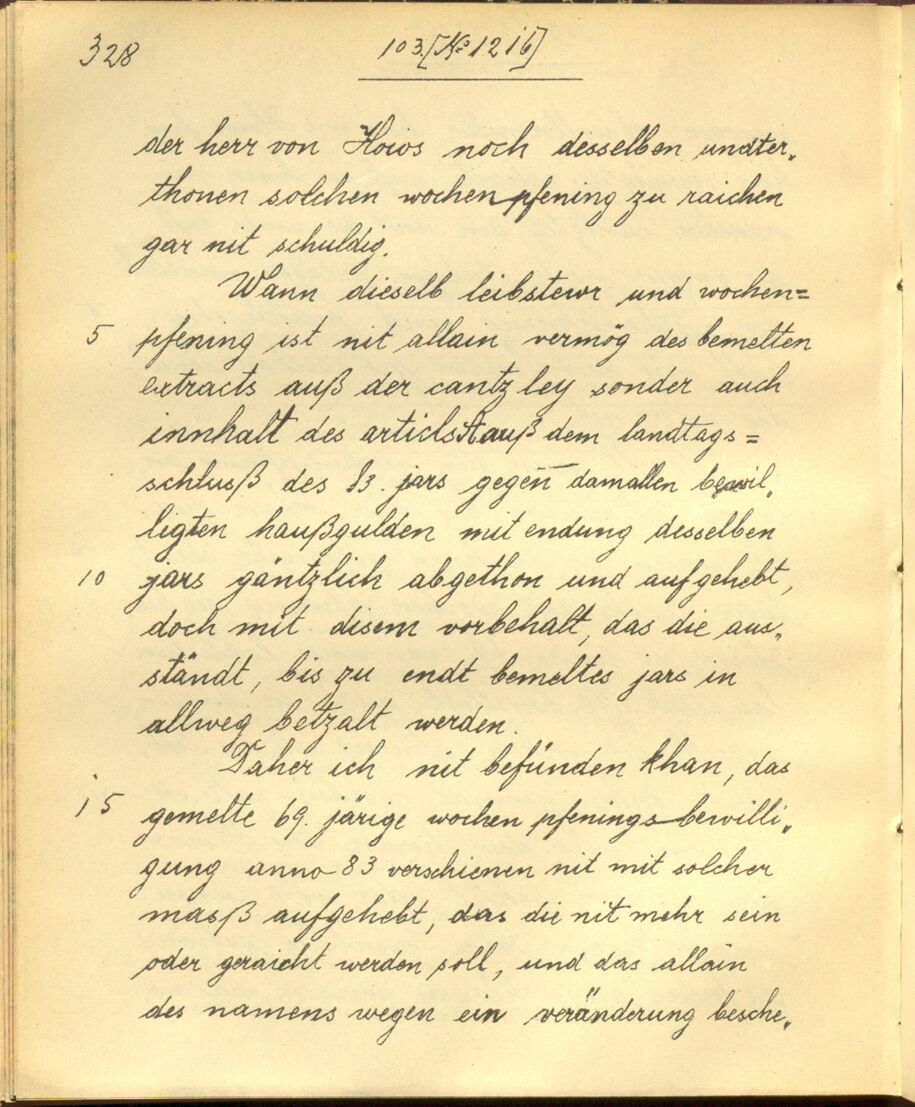 328
103. [No 1216]
der herr von Hoios noch desselben undter„
thonen solchen wochenpfening zu raichen
gar nit schuldig.
Wann dieselb leibstewr und wochen=
5 pfening ist nit allain vermög des bemelten
extracts auß der cantzley sonder auch
innhalt des articls A auß dem landtags=
schluß des 83. jars gegen damallen bewil„
ligten haußgulden mit endung desselben
10 jars gäntzlich abgethon und aufgehebt,
doch mit disem vorbehalt, das die aus„
ständt, bis zu endt bemeltes jars in
allweg betzalt werden.
Daher ich nit befünden khan, das
15 gemelte 69. järige wochenpfenings bewilli„
gung anno 83 verschienen nit mit solcher
masß aufgehebt, das die nit mehr sein
oder geraicht werden soll, und das allain
des namens wegen ein veränderung besche„